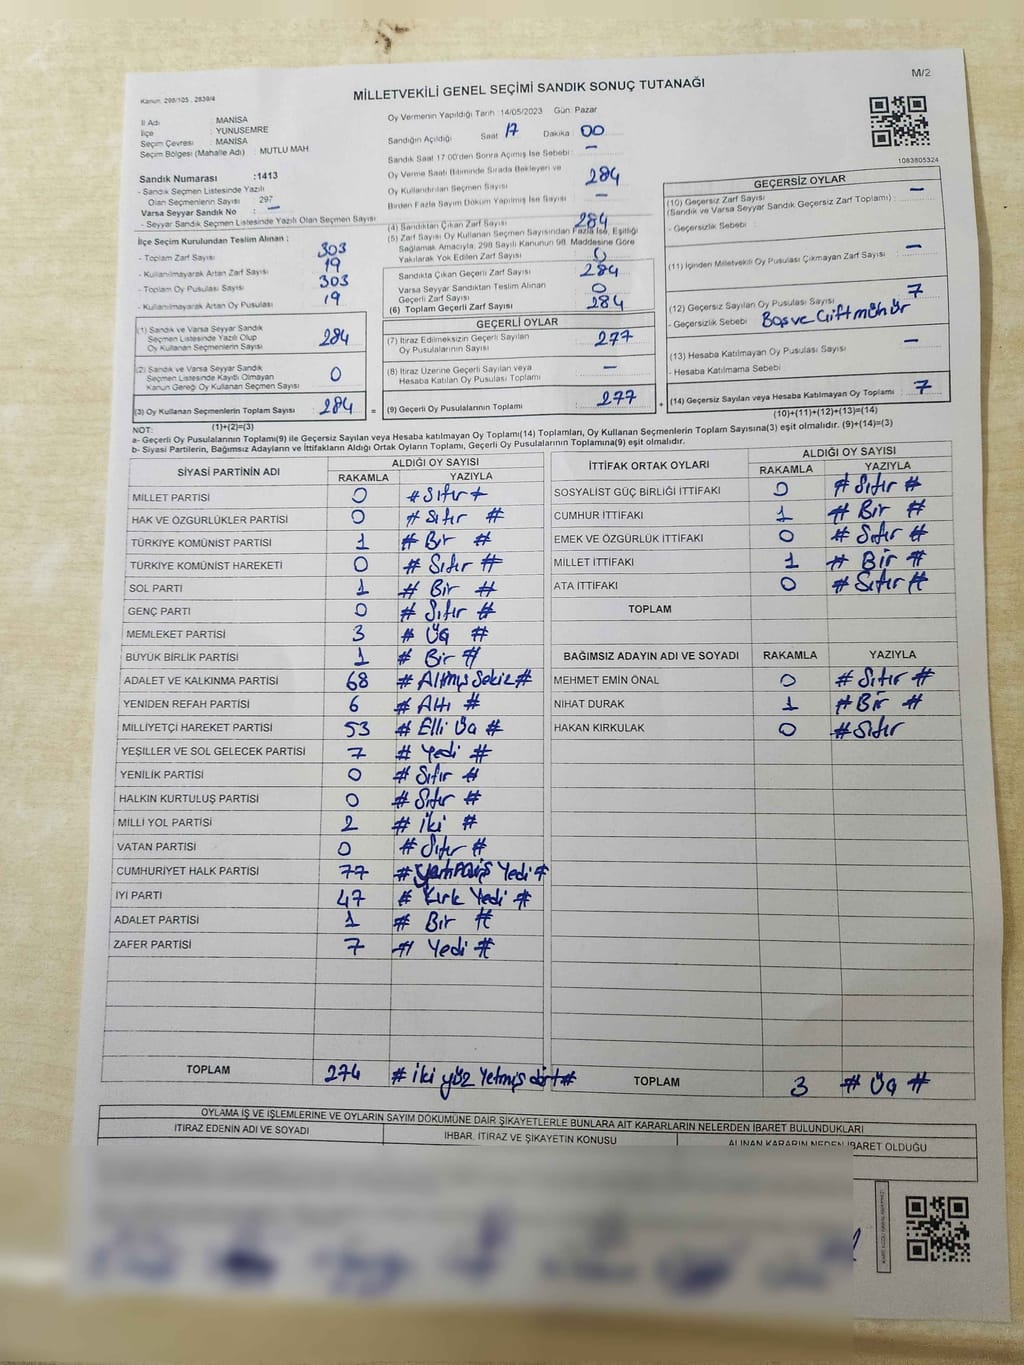 M/2
Kanun: 298/105 , 2839/4
MİLLETVEKİLİ GENEL SEÇİMİ SANDIK SONUÇ TUTANAĞI
İl Adı : MANİSA
İlçe : YUNUSEMRE
Seçim Çevresi : MANİSA
Seçim Bölgesi (Mahalle Adı) : MUTLU MAH
Sandık Numarası :1413
- Sandık Seçmen Listesinde Yazılı
Olan Seçmenlerin Sayısı : 297
Varsa Seyyar Sandık No : –
- Seyyar Sandık Seçmen Listesinde Yazılı Olan Seçmen Sayısı
İlçe Seçim Kurulundan Teslim Alınan :
- Toplam Zarf Sayısı : 303
- Kullanılmayarak Artan Zarf Sayısı : 19
- Toplam Oy Pusulası Sayısı : 303
- Kullanılmayarak Artan Oy Pusulası : 19
(1) Sandık ve Varsa Seyyar Sandık
Seçmen Listesinde Yazılı Olup
Oy Kullanan Seçmenlerin Sayısı 284
(2) Sandık ve Varsa Seyyar Sandık
Seçmen Listesinde Kayıtlı Olmayan
Kanun Gereği Oy Kullanan Seçmen Sayısı 0
(3) Oy Kullanan Seçmenlerin Toplam Sayısı : 284 =
(1)+(2)=(3)
Oy Vermenin Yapıldığı Tarih :14/05/2023 Gün: Pazar
Sandığın Açıldığı Saat 17 Dakika : 00
Sandık Saat 17:00'den Sonra Açılmış İse Sebebi : –
Oy Verme Saati Bitiminde Sırada Bekleyen ve
Oy Kullandırılan Seçmen Sayısı : 284
Birden Fazla Sayım Döküm Yapılmış İse Sayısı : –
(4) Sandıktan Çıkan Zarf Sayısı : 284
(5) Zarf Sayısı Oy Kullanan Seçmen Sayısından Fazla İse, Eşitliği
Sağlamak Amacıyla, 298 Sayılı Kanunun 98. Maddesine Göre
Yakılarak Yok Edilen Zarf Sayısı : 0
Sandıkta Çıkan Geçerli Zarf Sayısı : 284
Varsa Seyyar Sandıktan Teslim Alınan
Geçerli Zarf Sayısı : 0
(6) Toplam Geçerli Zarf Sayısı : 284
GEÇERLİ OYLAR
(7) İtiraz Edilmeksizin Geçerli Sayılan
Oy Pusulalarının Sayısı : 277
(8) İtiraz Üzerine Geçerli Sayılan veya
Hesaba Katılan Oy Pusulası Toplamı : –
(9) Geçerli Oy Pusulalarının Toplamı : 277 +
1083805324
GEÇERSİZ OYLAR
(10) Geçersiz Zarf Sayısı –
(Sandık ve Varsa Seyyar Sandık Geçersiz Zarf Toplamı) :
- Geçersizlik Sebebi :
(11) İçinden Milletvekili Oy Pusulası Çıkmayan Zarf Sayısı : –
(12) Geçersiz Sayılan Oy Pusulası Sayısı : 7
- Geçersizlik Sebebi Boş ve Çift mühür
(13) Hesaba Katılmayan Oy Pusulası Sayısı : –
- Hesaba Katılmama Sebebi :
(14) Geçersiz Sayılan veya Hesaba Katılmayan Oy Toplamı : 7
(10)+(11)+(12)+(13)=(14)
NOT:
a- Geçerli Oy Pusulalarının Toplamı(9) ile Geçersiz Sayılan veya Hesaba katılmayan Oy Toplamı(14) Toplamları, Oy Kullanan Seçmenlerin Toplam Sayısına(3) eşit olmalıdır. (9)+(14)=(3)
b- Siyasi Partilerin, Bağımsız Adayların ve İttifakların Aldığı Ortak Oyların Toplamı, Geçerli Oy Pusulalarının Toplamına(9) eşit olmalıdır.
SİYASİ PARTİNİN ADI ALDIĞI OY SAYISI
RAKAMLA YAZIYLA
MİLLET PARTİSİ 0 # Sıfır #
HAK VE ÖZGÜRLÜKLER PARTİSİ 0 # Sıfır #
TÜRKİYE KOMÜNİST PARTİSİ 1 # Bir #
TÜRKİYE KOMÜNİST HAREKETİ 0 # Sıfır #
SOL PARTİ 1 # Bir #
GENÇ PARTİ 0 # Sıfır #
MEMLEKET PARTİSİ 3 # Üç #
BÜYÜK BİRLİK PARTİSİ 1 # Bir #
ADALET VE KALKINMA PARTİSİ 68 # Altmış Sekiz #
YENİDEN REFAH PARTİSİ 6 # Altı #
MİLLİYETÇİ HAREKET PARTİSİ 53 # Elli Üç #
YEŞİLLER VE SOL GELECEK PARTİSİ 7 # Yedi #
YENİLİK PARTİSİ 0 # Sıfır #
HALKIN KURTULUŞ PARTİSİ 0 # Sıfır #
MİLLİ YOL PARTİSİ 2 # İki #
VATAN PARTİSİ 0 # Sıfır #
CUMHURİYET HALK PARTİSİ 77 # Yetmiş Yedi #
İYİ PARTİ 47 # Kırk Yedi #
ADALET PARTİSİ 1 # Bir #
ZAFER PARTİSİ 7 # Yedi #
TOPLAM 274 # iki yüz Yetmiş dört #
İTTİFAK ORTAK OYLARI ALDIĞI OY SAYISI
RAKAMLA YAZIYLA
SOSYALİST GÜÇ BİRLİĞİ İTTİFAKI 0 # Sıfır #
CUMHUR İTTİFAKI 1 # Bir #
EMEK VE ÖZGÜRLÜK İTTİFAKI 0 # Sıfır #
MİLLET İTTİFAKI 1 # Bir #
ATA İTTİFAKI 0 # Sıfır #
TOPLAM
BAĞIMSIZ ADAYIN ADI VE SOYADI RAKAMLA YAZIYLA
MEHMET EMİN ÖNAL 0 # Sıfır #
NİHAT DURAK 1 # Bir #
HAKAN KIRKULAK 0 # Sıfır
TOPLAM 3 # Üç #
OYLAMA İŞ VE İŞLEMLERİNE VE OYLARIN SAYIM DÖKÜMÜNE DAİR ŞİKAYETLERLE BUNLARA AİT KARARLARIN NELERDEN İBARET BULUNDUKLARI
İTİRAZ EDENİN ADI VE SOYADI İHBAR, İTİRAZ VE ŞİKAYETİN KONUSU ALINAN KARARIN NEDEN İBARET OLDUĞU